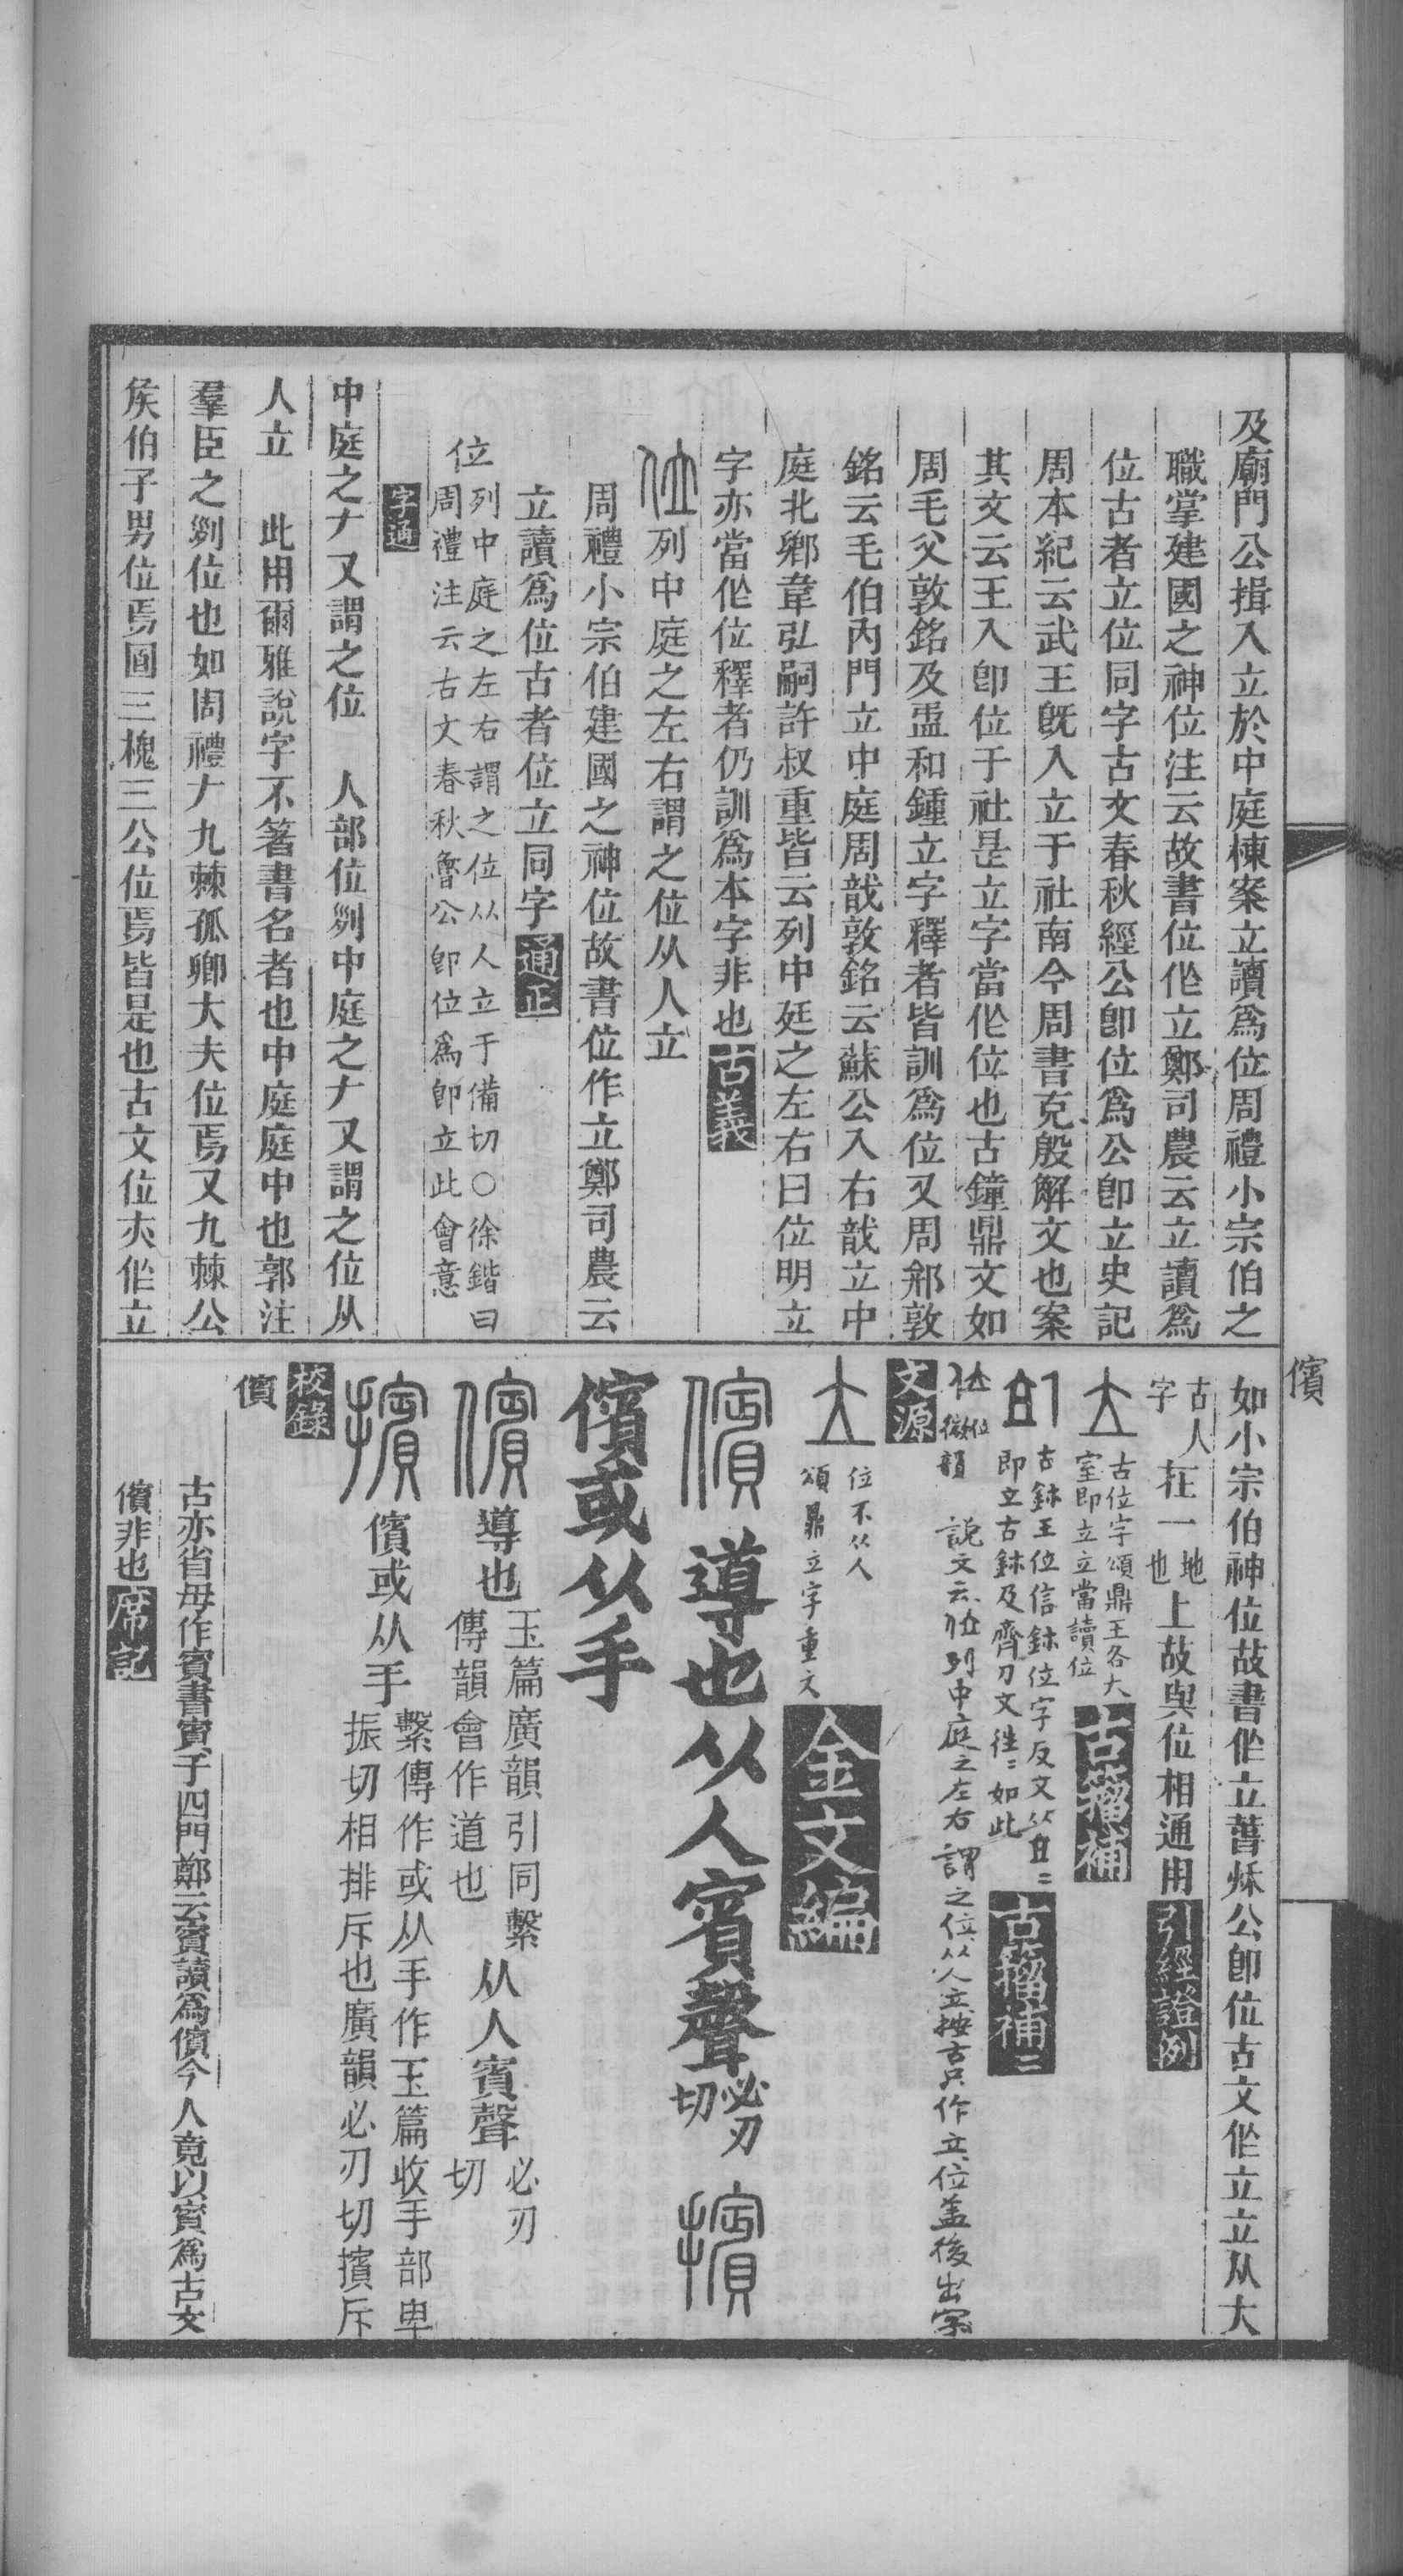 及廟門公揖入立於中庭棟案立讀爲位周禮小宗伯之
職掌建國之神位注云故書位作立鄭司農云立讀爲
位古者立位同字古文春秋經公卽位爲公卽立史記
周本紀云武王旣入立于社南今周書克殷解文也案
其文云王入卽位于社是立字當作位也古鐘鼎文如
周毛父敦銘及盄和鍾立字釋者皆訓爲位又周邢敦
銘云毛伯內門立中庭周敔敦銘云蘇公入右敔立中
庭北鄉韋弘嗣許叔重皆云列中廷之左右曰位明立
字亦當作位釋者仍訓爲本字非也古義
位列中庭之左右謂之位从人立
周禮小宗伯建國之神位故書位作立鄭司農云
立讀爲位古者位立同字通正
位
列中庭之左右謂之位从人立于備切○徐鍇曰
周禮注云古文春秋魯公卽位爲卽立此會意
字通
中庭之𠂇又謂之位 人部位𠛱中庭之𠂇又謂之位从
人立 此用爾雅說字不箸書名者也中庭庭中也郭注
羣臣之𠛱位也如周禮𠂇九棘孤卿大夫位焉又九棘公
矦伯子男位焉面三槐三公位焉皆是也古文位亦作立
儐
如小宗伯神位故書作立蒈秌公卽位古文作立立从大
古人
字
在一
地
也
上故與位相通用引經證例
古位字頌鼎王各大
室即立立當讀位
古籀補
古鉥王位信鉥位字反文从
即立古鉥及齊刀文徃〻如此
古籀補二
位
微韻
說文云位列中庭之左右謂之位从人立按古只作立位盖後出字
文源
位不从人
頌鼎立字重文
金文編
儐導也从人賓聲必刃切擯
儐或从手
儐導也
玉篇廣韻引同繫
傳韻會作道也
从人賓聲
必刃
切
擯儐或从手
繫傳作或从手作玉篇收手部卑
振切相排斥也廣韻必刃切擯斥
校錄
儐
古亦省毋作賓書賓于四門鄭云賓讀爲儐今人竟以賓爲古文
儐非也席記